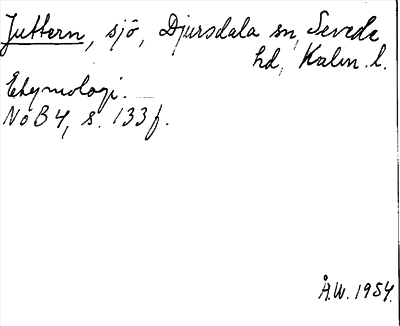 Juttern, sjö, Djursdala sn, Sevede
hd, Kalm. l.
Etymologi.
NoB 4, s. 133 f.
Å.W. 1954.